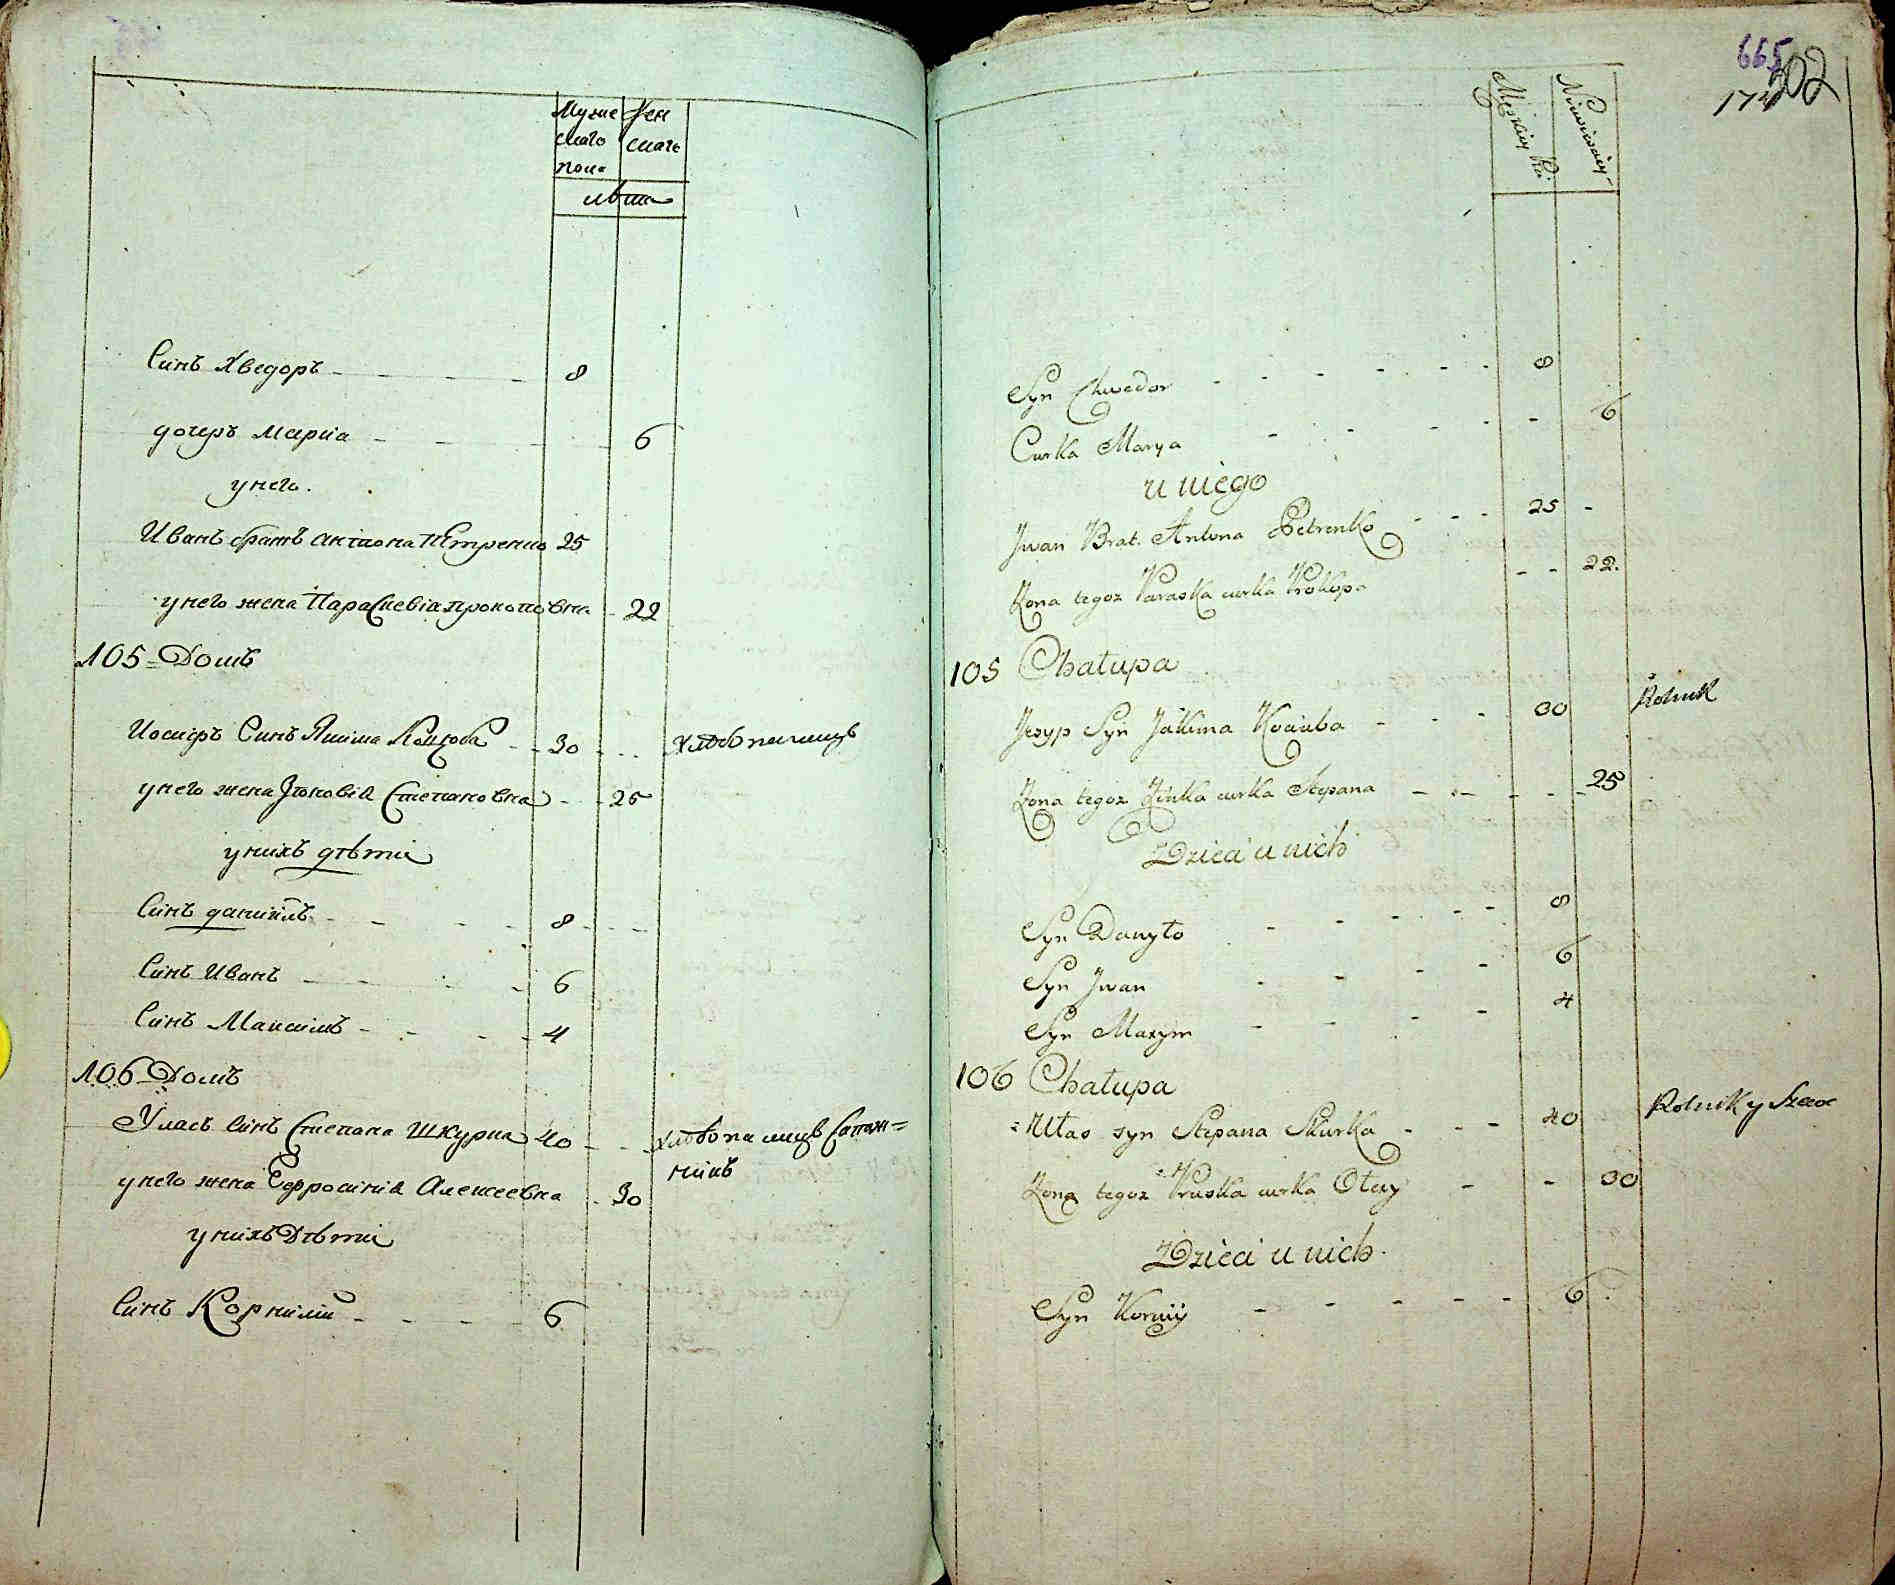 Муже
скаго
пола
Жен
скаго
лѣта
Синъ Хведоръ 8
дочеръ Мариа 6
у него.
Иванъ братъ Антона Петренко 25
у него жена Параскевіа Прокоповна 22
105 Домъ
Иосифъ Синъ Якима Коцюба 30 хлѣбопашецъ
у него жена Зѣновіа Степановна 25
у нихъ дѣти
Синъ даниилъ 8
Синъ Иванъ 6
Синъ Максимъ 4
106 Домъ
Уласъ Синъ Степана Шкурка 40 хлѣбопашецъ Сапож=
никъ
у него жена Евфросиніа Алексеевна 30
у нихъ Дѣти
Синъ Корнилій 6
665
202
174
Męzkiey Pł:
Niewiesciey
Syn Chwedor 8
Curka Marya 6
u niego
Jwan Brat Antona Petrenko 25
Zona tegoz Paraska curka Prokopa 22.
105 Chałupa
Jesyp Syn Jakima Kociuba 30 Rolnik
Zona tegoz Zinka curka Stepana 25
Dzieci u nich
Syn Danyło 8
Syn Jwan 6
Syn Maxym 4
106 Chałupa
Ułas syn Stepana Skurka 40 Rolnik y Szewc
Zona tegoz Pruska curka Olexy 30
Dzieci u nich
Syn Kornij 6